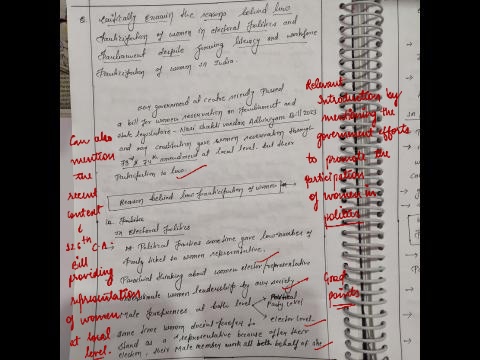 Q. Critically Examin the reasons behind low
Participation of women in electoral Politics and
Parliament despite growing literacy and workforce
Participation of women in India.
our government at centre recently Passed
a bill for women reservation in Parliament and
State legislature - Nari Shakti vandan Adhiniyam Bill 2023
and our constitution gave women reservation through
73rd & 74th amendment at local level. but their
Participation is low.
Reason behind low Participation of women
in Politics
In Electoral Politics
Political Parties sometime gave low number of
Party ticket to women representative.
Parochial thinking about women elector/representative
women leadership by our society
Male Preferences at both level
Political
Party level
elector level
some time women denied
stand as a representative because after their
election, their Male member work all both behalf of
Can also
mention
the
recent
context
&
126th
C.A.
Bill
providing
representation
of women
at local
level.
Relevant
Introduction by
mentioning the
government efforts
to promote the
Participation
of women in
politics
Great
points